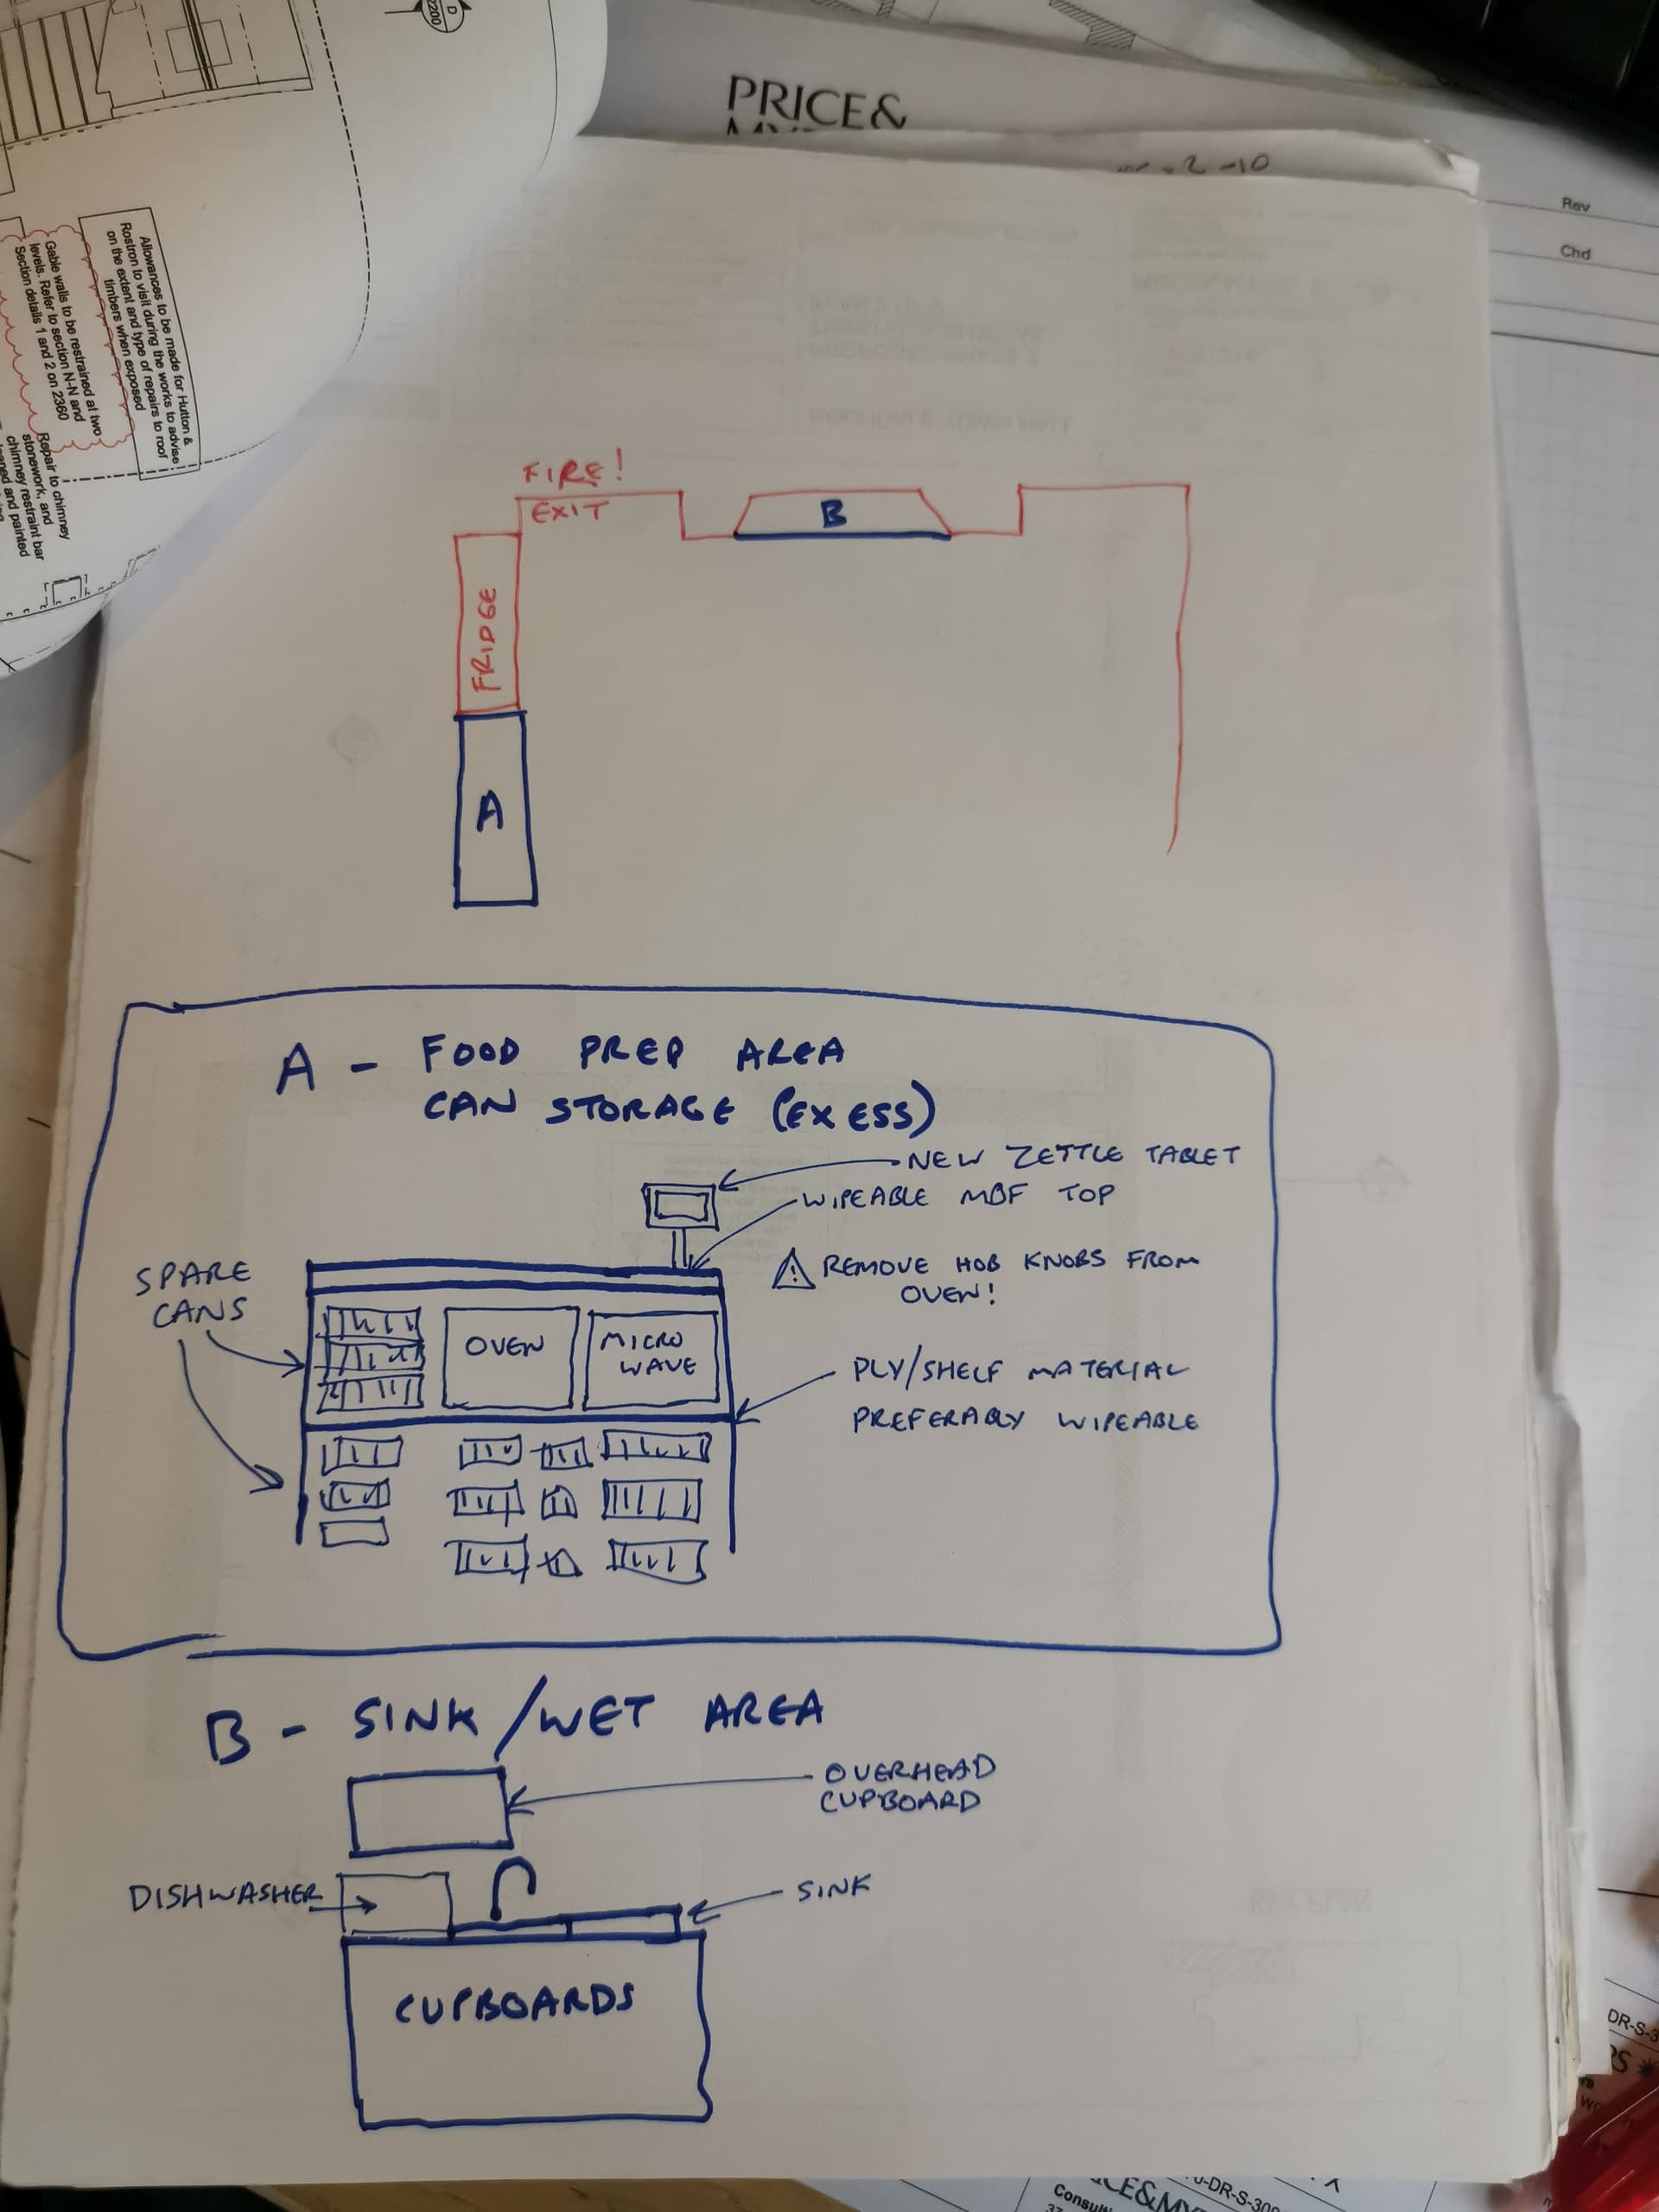 D
2200
PRICE&
Rev
Chd
Allowances to be made for Hutton &
Rostron to visit during the works to advise
on the extent and type of repairs to roof
timbers when exposed
Gable walls to be restrained at two
levels. Refer to section N-N and
Section details 1 and 2 on 2360
Repair to chimney
stonework, and
chimney restraint bar
and painted
FIRE!
EXIT
B
FRIDGE
A
A - FOOD PREP AREA
CAN STORAGE (EXESS)
NEW ZETTLE TABLET
WIPEABLE MDF TOP
⚠ REMOVE HOB KNOBS FROM
OVEN!
SPARE
CANS
OVEN
MICRO
WAVE
PLY/SHELF MATERIAL
PREFERABLY WIPEABLE
B - SINK/WET AREA
OVERHEAD
CUPBOARD
DISHWASHER
SINK
CUPBOARDS
DR-S-3
CE&MY
Consul
37